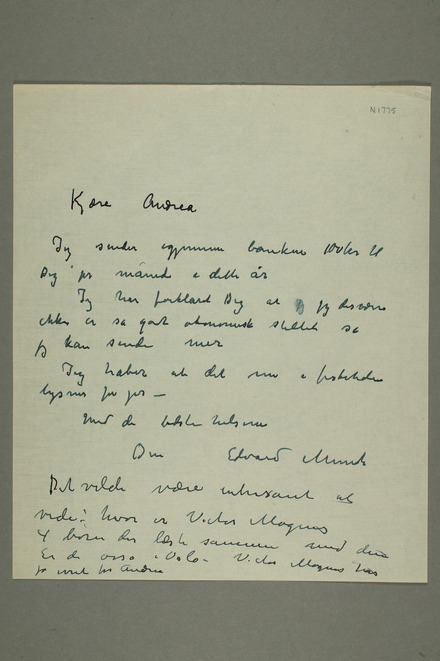 N 1775
Kjære Andrea
Jeg sender igjennem banken 100 kr til
Dig pr måned i dette år
Jeg har forklaret Dig at jeg desværre
ikke er så godt økonomisk stillet så
jeg kan sende mer
Jeg håber at det nu i
lysner for
Med de bedste hilsener
Din Edvard Munch
Det vilde være interesant at
vide: hvor er Victor Magnus
4 børn der læste sammen med
Er de også i Oslo – Victor Magnus har
Andrea